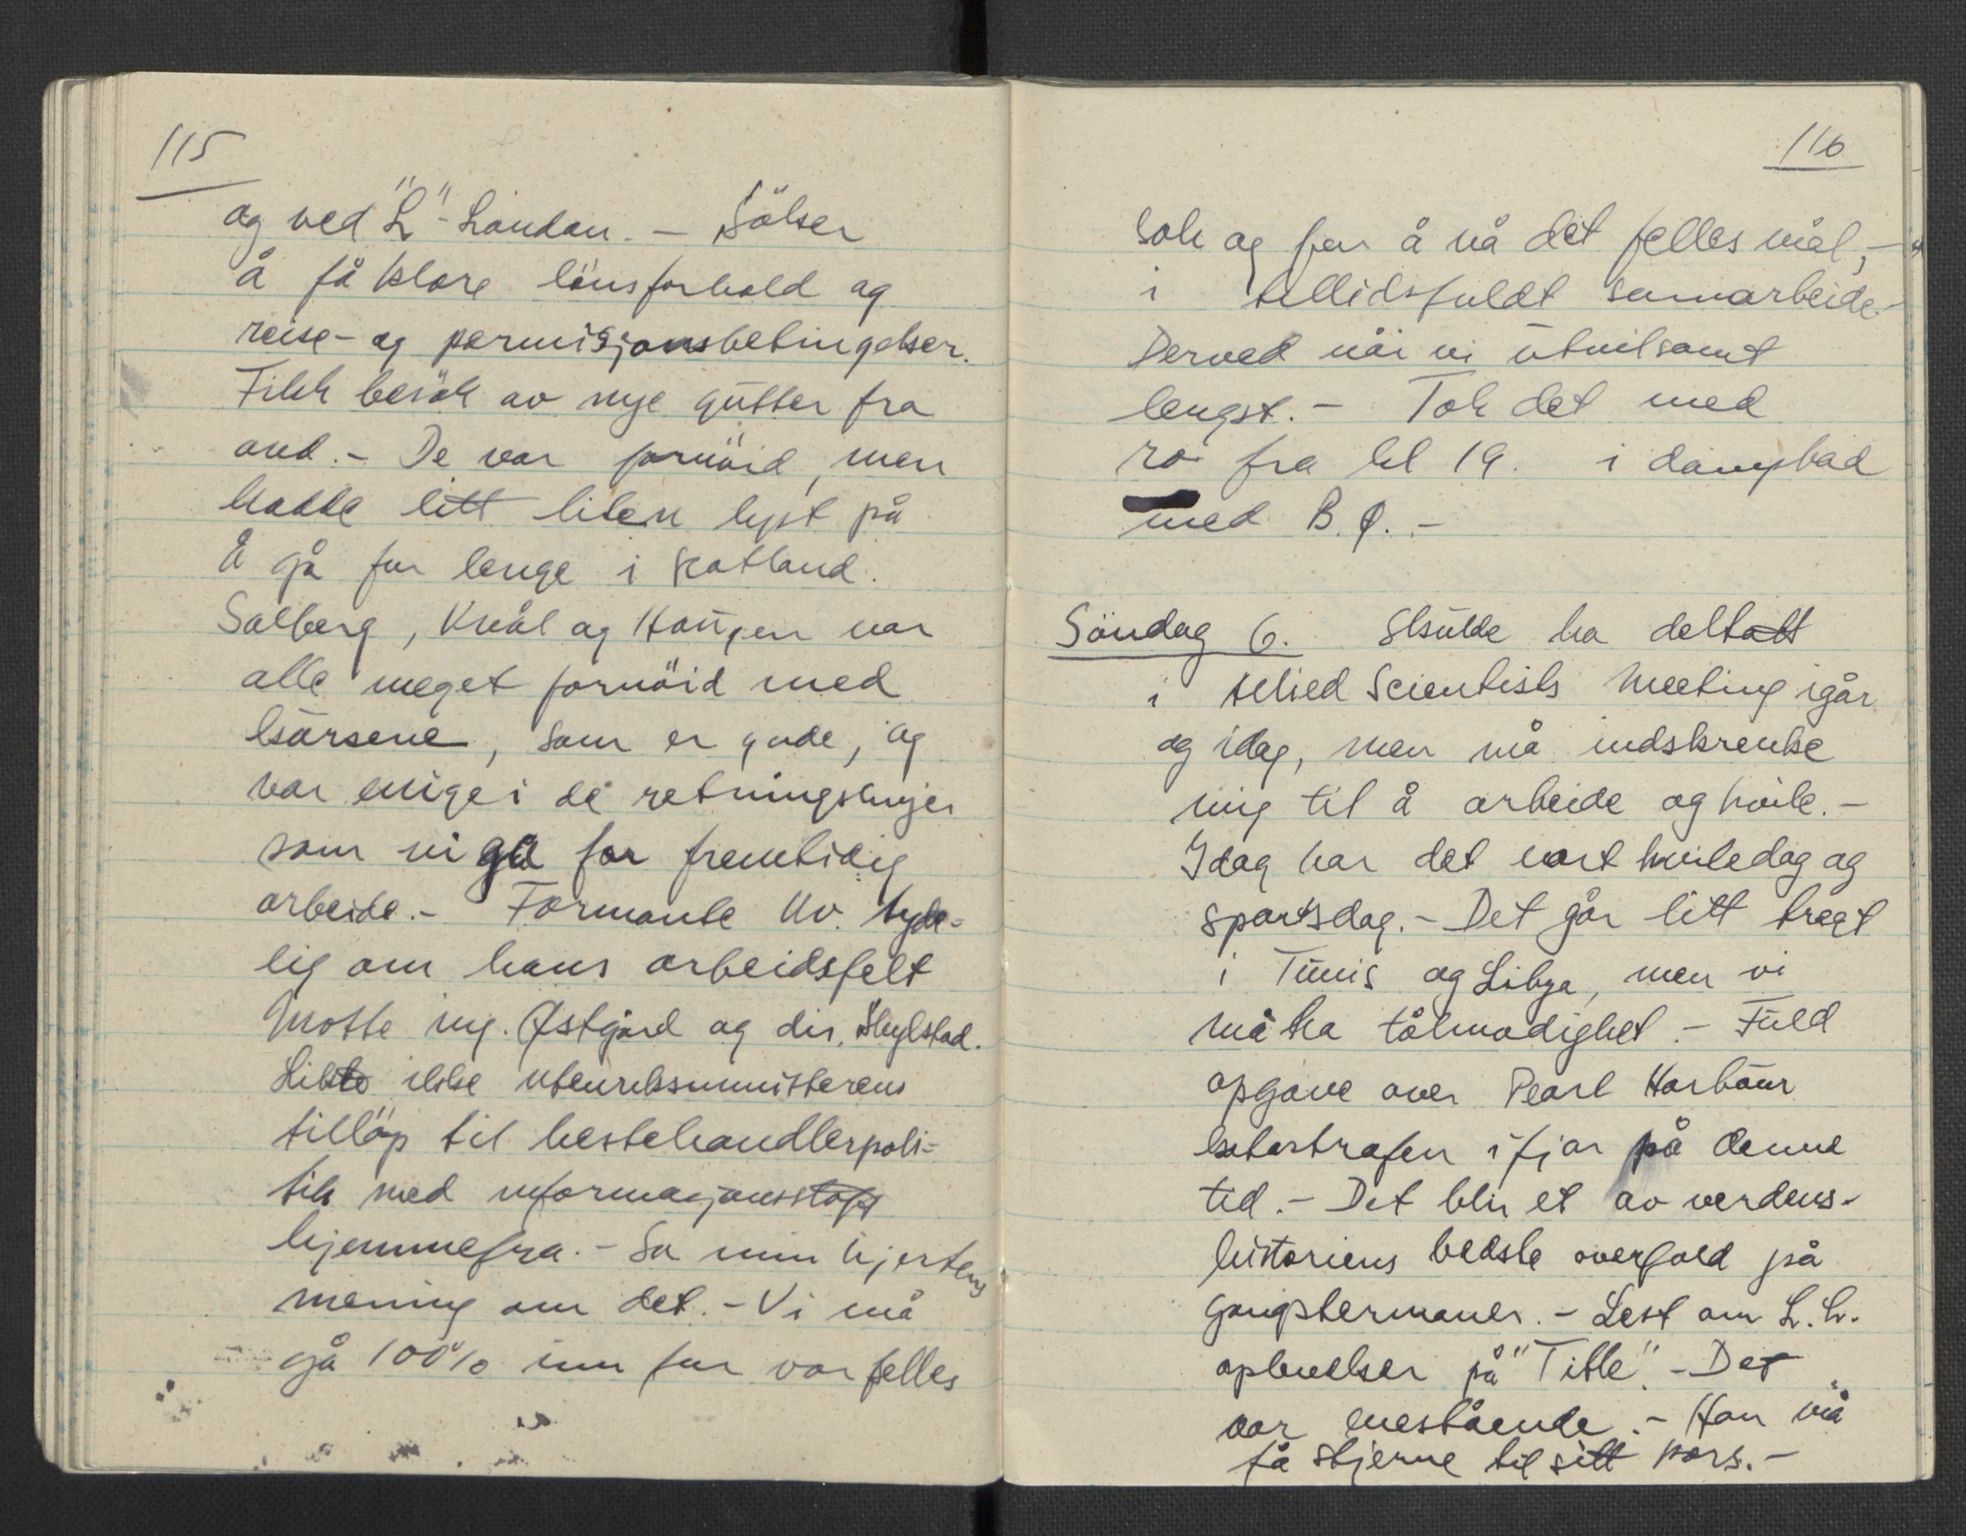 115
og ved "L"-London. - Söker
å få klare lönsforhold og
reise- og permisjonsbetingelser.
Fikk besök av nye gutter fra
avd. - De var fornöid, men
hadde litt liten lyst på
å gå for lenge i Skotland.
Solberg, Kvål og Haugen var
alle meget fornöid med
kursene, som er gode, og
var enige i de retningslinjer
som vi ga for fremtidig
arbeide. - Formante Kv. tyde-
lig om hans arbeidsfelt
Motte ing. Østgård og dir. Skylstad.
Likte ikke utenriksministerens
tilløp til hestehandlerpoli-
tik med informasjonsstoff
hjemmefra. - Sa min hjertens
mening om det. - Vi må
gå 100% inn for vor felles
116
sak og for å nå det felles mål, -
i tillidsfuldt samarbeide.
Derved når vi utvilsomt
lengst. - Tok det med
ro fra kl 19. i dampbad
med B.Ø. -
Söndag 6. Skulde ha deltatt
i Allied Scientists Meeting igår
og idag, men må indskrenke
mig til å arbeide og hvile. -
Idag har det vært hviledag og
sportsdag. - Det går litt tregt
i Tunis og Libya, men vi
må ha tålmodighet. - Fuld
opgave over Pearl Harbour
katastrofen ifjor på denne
tid. - Det blir et av verdens-
historiens bedste overfald på
gangstermaner. - Lest om L.L.
oplevelser på "Title". - Det
var enestående. - Han må
få stjerne til sitt kors. -